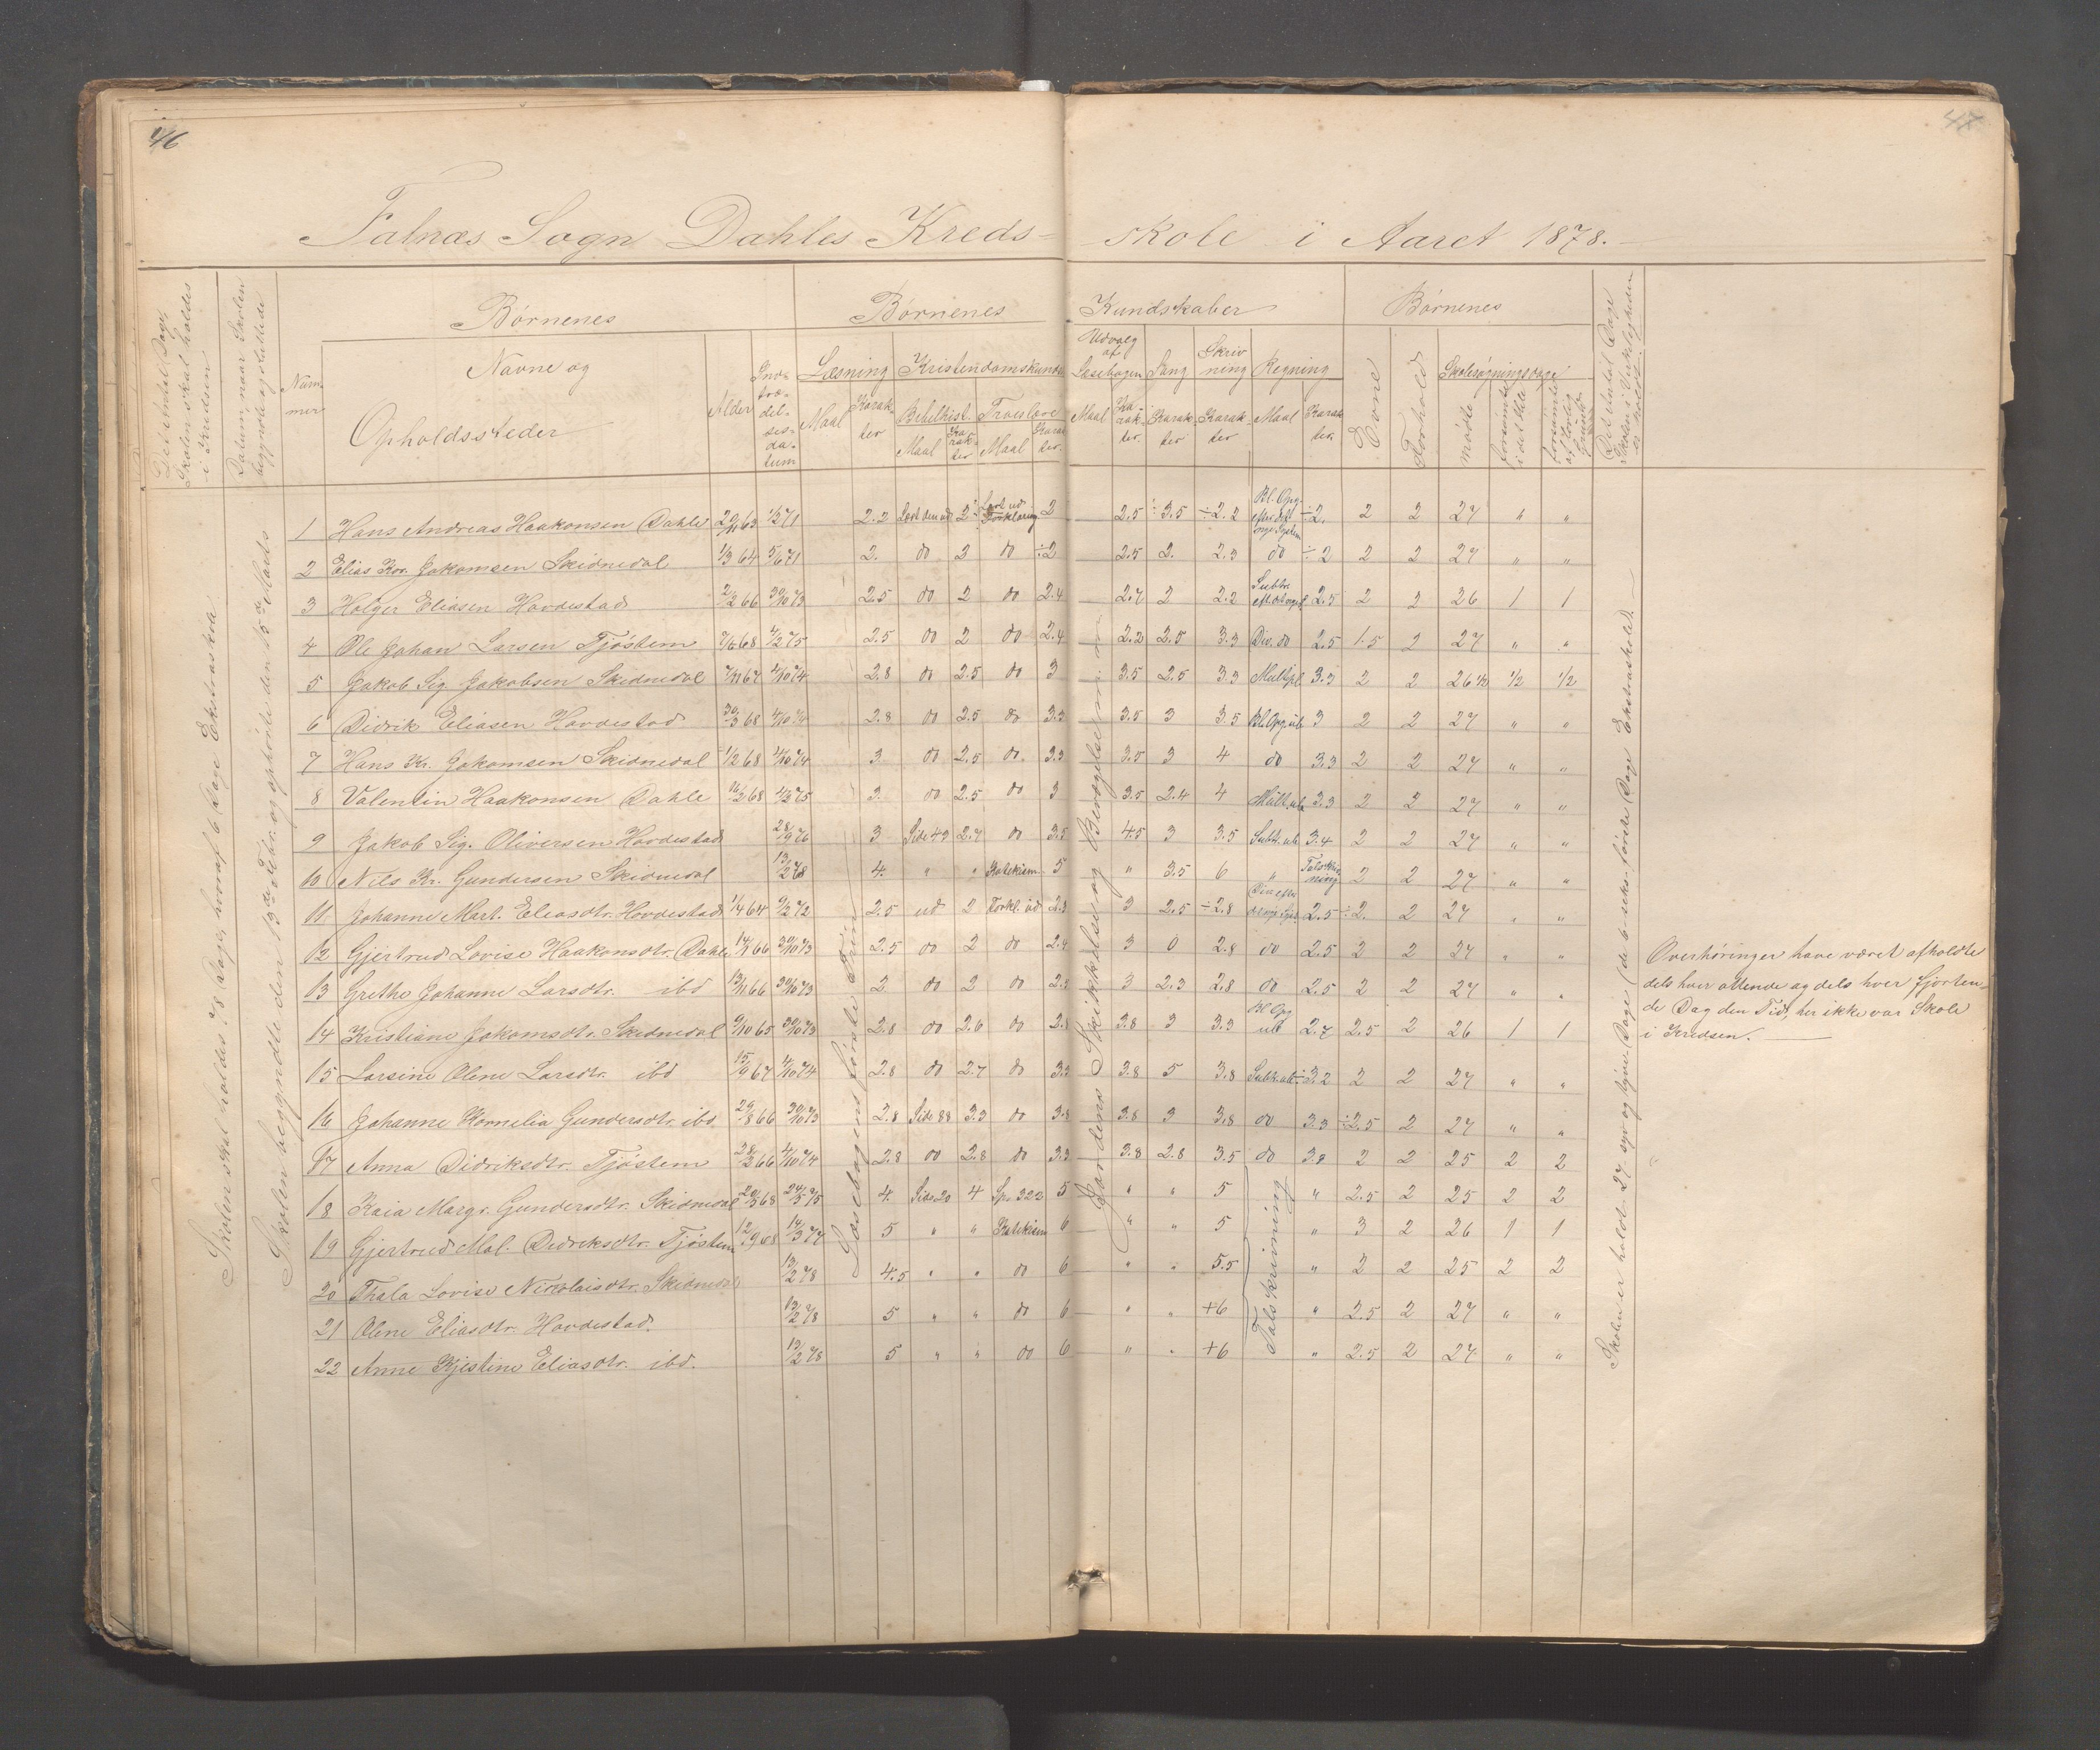 46
47
Falnæs Sogn Dahles Kreds-
skole i Aaret 1878.
Det Antal Dage, Skolen skal holdes i Kredsen
Datum, naar Skolen begyndte og sluttede
Num-mer
Børnenes
Navne og
Opholdssteder
Alder
Ind-træ-del-ses-da-tum
Børnenes
Kundskaber
Læsning
Maal
Karak-ter
Kristendomskund
Bibelhist.
Maal
Ka-rak-ter
Troeslære
Maal
Karak-ter.
Udvalg af Læsebogen
Maal
Ka-rak-ter.
Sang
Karak-ter
Skriv-ning
Karak-ter
Regning
Maal
Karak-ter.
Børnenes
Evne
Forhold
Skolesøgningsdage
mødte
forsømte i det Hele
forsømte af lovlig Grund
Det Antal Dage Skolen i Virkeligheden er holdt
Skolen skal holdes 28 Dage, hvoraf 6 Dage Ekstraskole
Skolen begyndte den 13de Febr. og ophørte den 15de Marts
Læsebogens første Trin
Jordens Skikkelse og Bevægelse m. m.
Skolen er holdt 27 syv og tyve Dage (de 6 seks første Dage Ekstraskole).
1 Hans Andreas Haakonsen Dahle 20/11 63 1/2 71 2.2 Læst den ud 2 Læst ud Forklaring 2 2.5 ÷3.5 ÷2.2 Bl. Opg. efter det nye System ÷2. 2 2 27 " "
2 Elias Kor. Jakomsen Skidnedal 1/3 64 5/6 71 2. do 2 do ÷2 2.5 2. 2.3 do ÷2 2 2 27 " "
3 Holger Eliasen Hovdestad 2/2 66 30/10 73 2.5 do 2 do 2.4 2.7 2 2.2 Subtr. 2.5 2 2 26 1 1
4 Ole Johan Larsen Tjøstem 7/6 68 4/2 75 2.5 do 2 do 2.4 2.2 2.5 3.3 Div. do 2.5 1.5 2 27 " "
5 Jakob Sig. Jakobsen Skidnedal 7/11 67 4/10 74 2.8 do 2.5 do 3 3.5 2.5 3.3 Multpl 3.3 2 2 26 1/2 1/2 1/2
6 Didrik Eliasen Hovdestad 30/3 68 4/10 74 2.8 do 2.5 do 3.3 3.5 3 3.5 Bl. Opg. ub 3 2 2 27 " "
7 Hans Kr. Jakomsen Skidnedal 1/12 68 4/10 74 3 do 2.5 do. 3.3 3.5 3 4 do 3.3 2 2 27 " "
8 Valentin Haakonsen Dahle 16/2 68 4/2 75 3. do 2.5 do 3 3.5 2.4 4 Mult. ub 3.3 2 2 27 " "
9 Jakob Sig. Oliversen Hovdestad 28/9 76 3 Side 43 2.7 do 3.5 4.5 3 3.5 Subt. ub 3.4 2 2 27 " "
10 Nils Kr. Gundersen Skidnedal 13/2 78 4. " " Katekism 5 " 3.5 6 " Talskrivning 2 2 27 " "
11 Johanne Mart. Eliasdtr. Hovdestad 1/4 64 9/2 72 2.5 ud 2 Forkl. ud 2.3 3 2.5 ÷2.8 2.5 ÷2. 2 27 " "
12 Gjertrud Lovise Haakonsdtr. Dahle 14/1 66 30/10 73 2.5 do 2 do 2.4 3 0 2.8 do 2.5 2 2 27 " "
13 Grethe Johanne Larsdtr. ibd 13/11 66 30/10 73 2 do 2 do 2.3 3 2.3 2.8 do 2.5 2 2 27 " "
14 Kristiane Jakomsdtr. Skidnedal 9/10 65 30/10 73 2.8 do 2.6 do 3.3 3.8 3 3.3 Bl. Opg ub 2.7 2.5 2 26 1 1
15 Larsine Olene Larsdtr. ibd 15/9 67 4/10 74 2.8 do 2.7 do 3.3 3.8 5 3.8 Subt. ub 3.2 2 2 27 " "
16 Johanne Kornelia Gundersdtr. ibd 29/8 66 30/10 73 2.8 Side 88 3.3 do 3.8 3.8 3 3.8 do 3.3 ÷2.5 2 27 " "
17 Anna Didriksdtr. Tjøstem 28/2 66 4/10 74 2.8 do 2.8 do 3.3 3.8 2.8 3.5 do 3.8 2 2 25 2 2
18 Kaia Margr. Gundersdtr. Skidnedal 20/5 68 24/5 75 4. Side 20 4 Sps. 322 5 " " 5 " 2.5 2 25 2 2
19 Gjertrud Mal. Didriksdtr. Tjøstem 12/9 68 14/3 77 5 " " Katekism 6 " " 5 " 3 2 26 1 1
20 Thala Lovise Nicolaisdtr. Skidnedal 13/2 78 4.5 " " do 6 " " 5.5 " 2 2 25 2 2
21 Olene Eliasdtr. Hovdestad. 13/2 78 5 " " do 6 " " +6 " 2.5 2 27 " "
22 Anne Kjestine Eliasdtr. ibd. 13/2 78 5 " " do 6 " " +6 " 2.5 2 27 " "
Talskrivning
Overhøringer have været afholdte
dels hver ottende og dels hver fjorten-
de Dag den Tid, her ikke var Skole
i Kredsen.